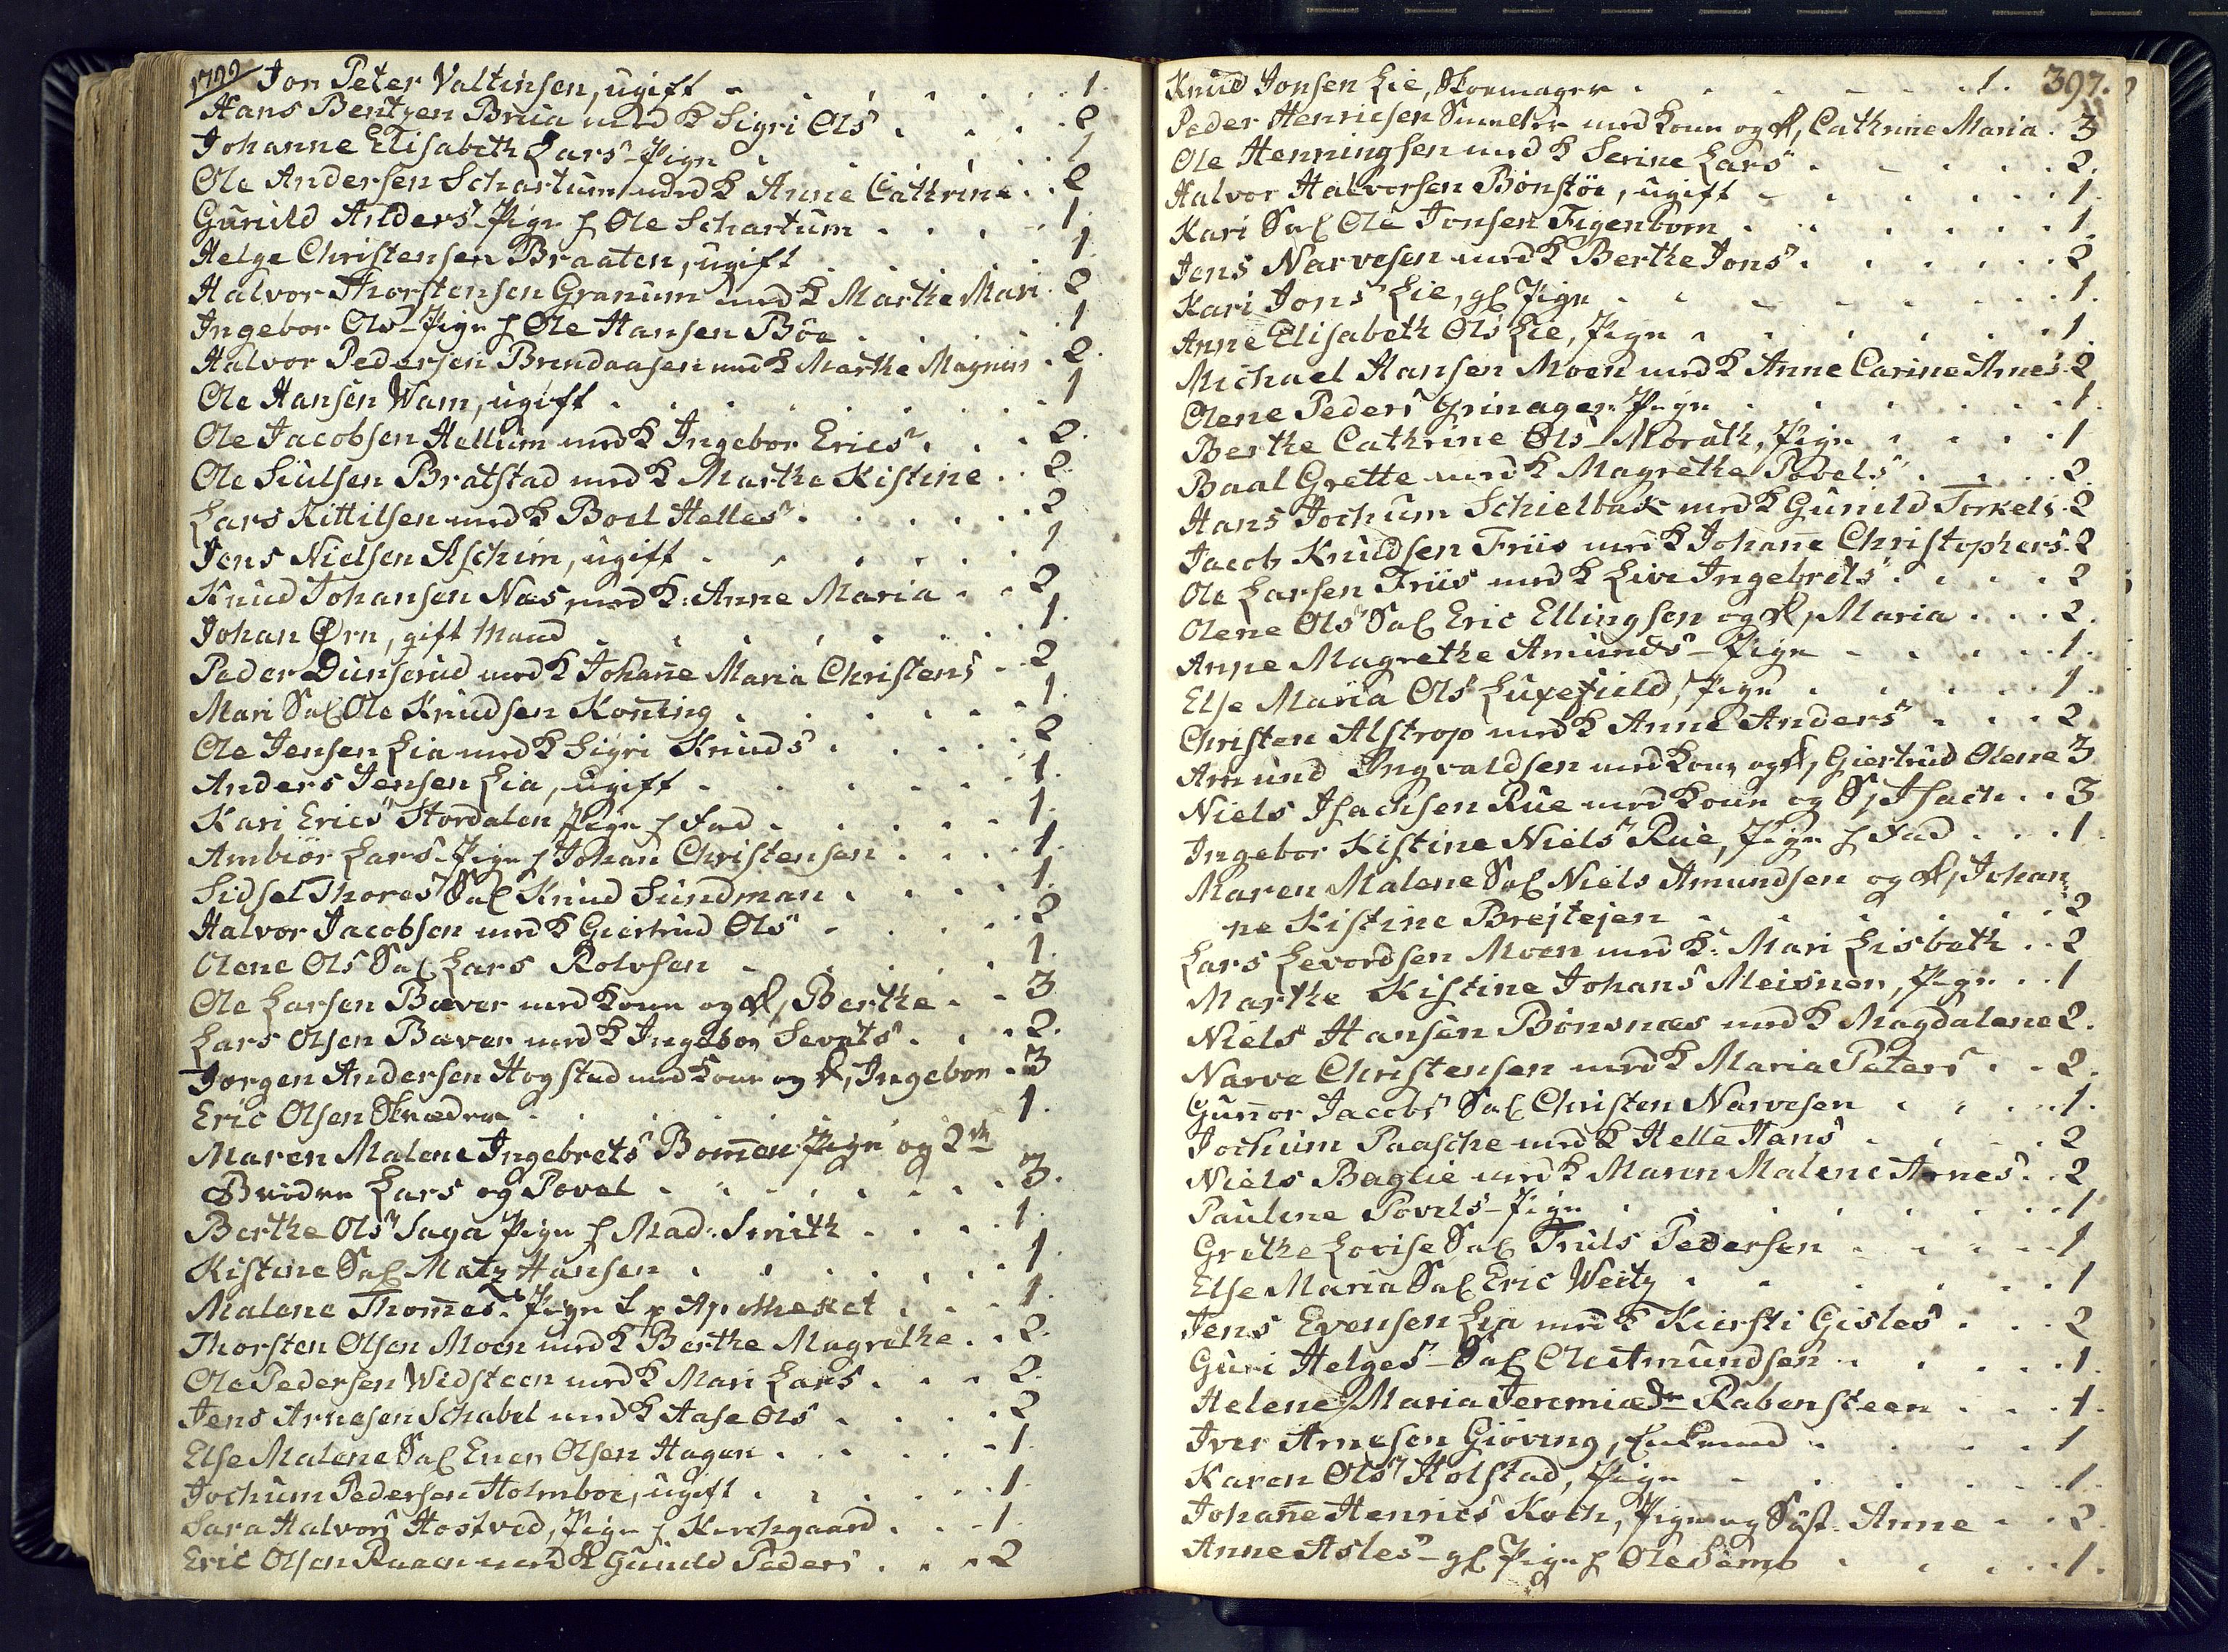 1799
Jon Peter Valtinsen, ugift - . . . . . 1.
Hans Bentzen Brua med K Sigri Ols . . . 2
Johanne Elisabeth Lars-Pige . . . . 1
Ole Andersen Schartum med K Anne Cathrine . . 2
Gunild Anders-Pige f Ole Schartum . . . . 1.
Helge Christensen Braaten, ugift . . . . 1.
Halvor Thorstensen Granum med K Marthe Mari . 2
Ingebor Ols-Pige f Ole Hansen Böe . . . . 1
Halvor Pedersen Brendaasen med K Marthe Magnus . 2.
Ole Hansen Wam, ugift . . . . . . . 1
Ole Jacobsen Hellum med K Ingebor Erics . . . 2.
Ole Siulsen Bratstad med K Marthe Kistine . . 2
Lars Kittilsen med K Boel Helles . . . . . 2
Jens Nielsen Aschim, ugift . . . . . . 1
Knud Johansen Næs med K: Anne Maria . . 2
Johan Ørn, gift Mand . . . . . . . 1.
Peder Dunserud med K Johañe Maria Christens . . 2
Mari Sal Ole Knudsen Koñing . . . . . . 1.
Ole Jensen Lia med K Sigri Knuds . . . . . 2
Anders Jensen Lia, ugift . . . . . 1.
Kari Erics Stordalen Pige f Fad . . . . . 1.
Ambiör Lars-Pige f Johan Christensen . . . . 1.
Sidsel Thores Sal Knud Sundman . . . . . 1.
Halvor Jacobsen med K Giertrud Ols - . . . . 2
Olene Ols Sal Lars Rolvsen - . . . . . 1.
Ole Larsen Bæver med Kone og D, Berthe . . 3
Lars Olsen Bæver med K Ingebor Sevats . . . 2.
Jørgen Andersen Hogstad med Kone og D, Ingebor . 3
Eric Olsen Skræder . . . . . . . 1.
Maren Malene Ingebrets Bomen Pige og 2de
Brödre Lars og Povel . . . . . . . . 3.
Berthe Ols Saga Pige f Mad: Smith . . . . 1.
Kistine Sal Matz Hansen . . . . . . . 1.
Malene Thomes. Pige f p Apotheket . . . . 1.
Thorsten Olsen Moen med K Berthe Magrethe . . 2.
Ole Pedersen Widsteen med K Mari Lars . . . 2.
Jens Arnesen Schabel med K Aase Ols . . . . 2
Else Malene Sal Even Olsen Hagen . . . . - 1.
Jochum Pedersen Holmboe, ugift . . . . . . 1.
Sara Halvors Hostved, Pige f Kirchgaard . . . - 1.
Eric Olsen Raaen med K Gunild Peders . . . . 2
397.
Knud Jonsen Lie, Skomager . . . - - . 1.
Peder Henricsen Smelter med Kone og D, Cathrine Maria . 3
Ole Henningsen med K Serine Lars . . . . . 2.
Halvor Halvorsen Bönstöe, ugift - . . . . . 1.
Kari Sal Ole Jonsen Figenborn . . . . . . 1.
Jens Narvesen med K Berthe Jons . . . . . . 2
Kari Jons Lie, gl Pige . . . . . . . 1.
Anne Elisabeth Ols Lie, Pige . . . . . . . 1.
Michael Hansen Moen med K Anne Carine Arnes 2
Olene Peders Grinager Pige . . . . . . . 1.
Berthe Cathrine Ols Morath, Pige . . . . . 1
Baal Grette med K Magrethe Povels . . . . 2.
Hans Jochum Schielbak med K Gunild Torkels . 2
Jacob Knudsen Friis med K Johañe Christophers . 2
Ole Larsen Friis med K Live Ingebrets . . . . 2
Olene Ols Sal Eric Ellingsen og D, Maria . . . 2.
Anne Magrethe Amunds-Pige - . . . . 1.
Else Maria Ols Luxefield, Pige . . . . . . 1.
Christen Alstrop med K Anne Anders . . . . 2.
Amund Ingvaldsen med Kone og D, Giertrud Olene 3
Niels Isachsen Rue med Kone og S, Isach . . 3
Ingebor Kistine Niels Rue, Pige f Fad . . . . 1.
Maren Malene Sal Niels Amundsen og D, Johan
ne Kistine Brejtejen . . . . . . . 2
Lars Levordsen Moen med K: Mari Lisbeth . . 2
Marthe Kistine Johans Meisner, Pige . . . 1
Niels Hansen Bönsnæs med K Magdalene 2.
Narve Christensen med K Maria Peters . . . 2.
Guñor Jacobs Sal Christen Narvesen . . . . 1.
Jochum Paasche med K Helle Hans . . . . 2
Niels Baglie med K Maren Malene Arnes . . 2
Pauline Povels-Pige . . . . . . . . 1
Grethe Lovise Sal Truls Pedersen . . . . . 1
Else Maria Sal Eric Weitz . . . . . . 1
Jens Evensen Lia med K Kiersti Gisles . . . . 2
Guri Helges-Sal Ole Amundsen . . . . . . 1.
Helene Maria Jeremiæ Dr Rabensteen . . . . 1.
Iver Arnesen Giöving, Enkemand . . . . . 1
Karen Ols Holstad, Pige - . . . . . . 1.
Johañe Henrics Koch, Pige og Söst. Anne . . . 2.
Anne Asles-gl Pige f Ole Semb . . . . . 1.